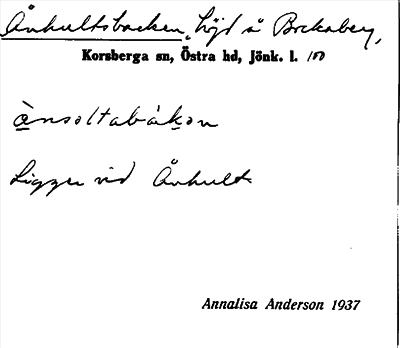 Ånhultsbacken, höjd å Bockaberg,
Korsberga sn, Östra hd, Jönk. l. 100
ànsoltabákon
Ligger vid Ånhult.
Annalisa Anderson 1937